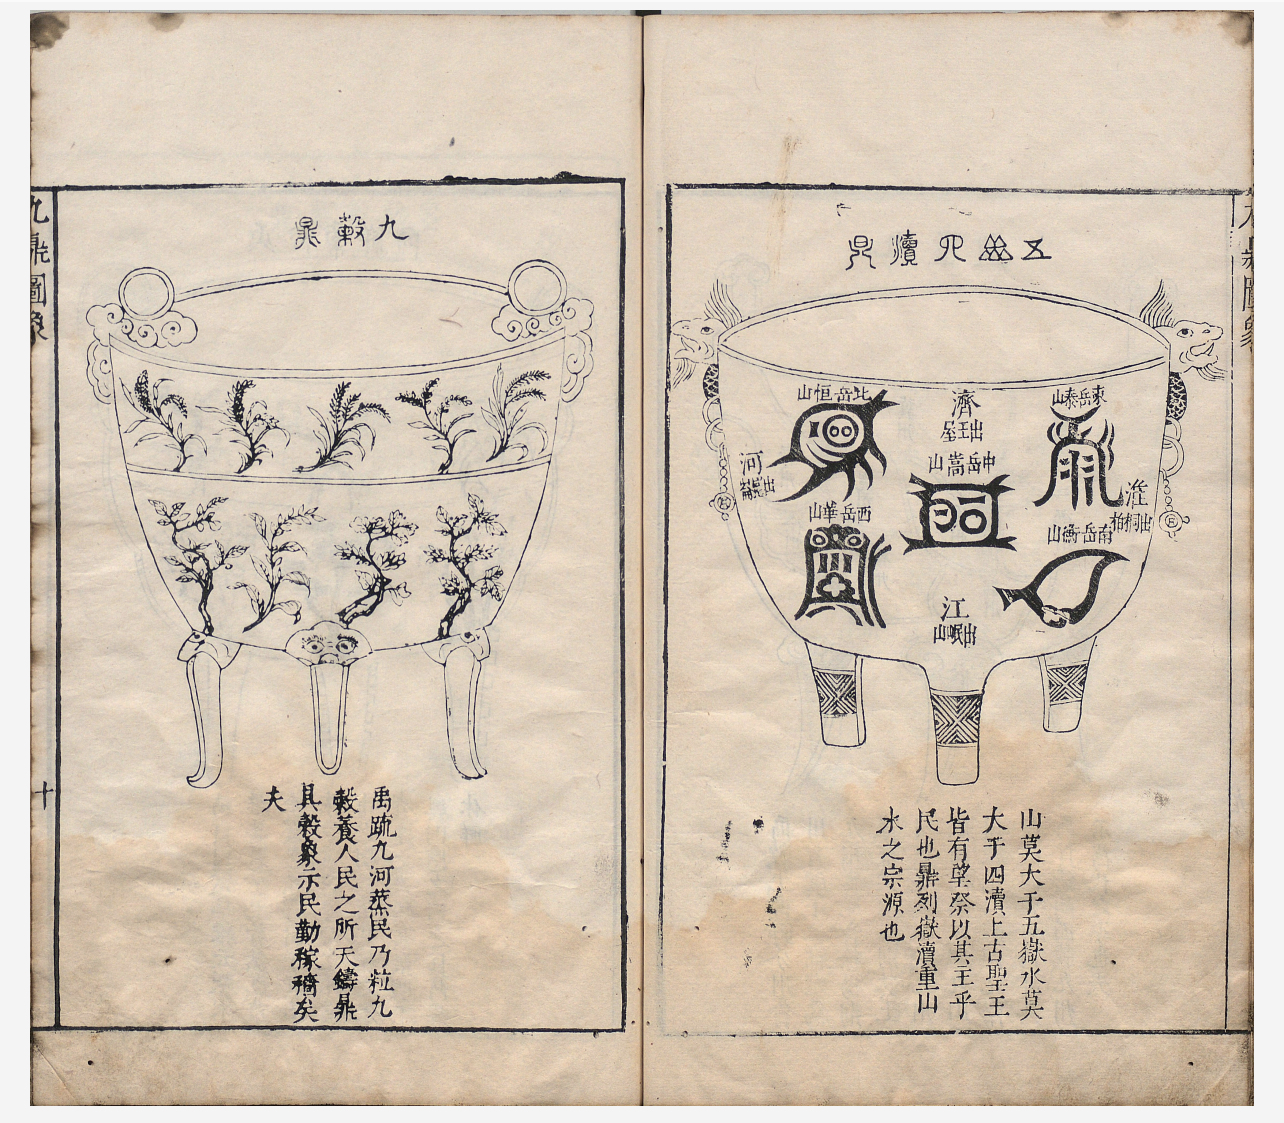 五嶽四瀆鼎
東岳泰山
淮
出桐柏
南岳衡山
濟
出王屋
中岳嵩山
江
出岷山
北岳恒山
河
出崑崙
西岳華山
山莫大于五嶽水莫
大于四瀆上古聖王
皆有望祭以其主乎
民也鼎列嶽瀆重山
水之宗源也
九穀鼎
禹疏九河蒸民乃粒九
穀養人民之所天鑄鼎
具穀象示民勤稼穡矣
夫
九鼎圖象
十